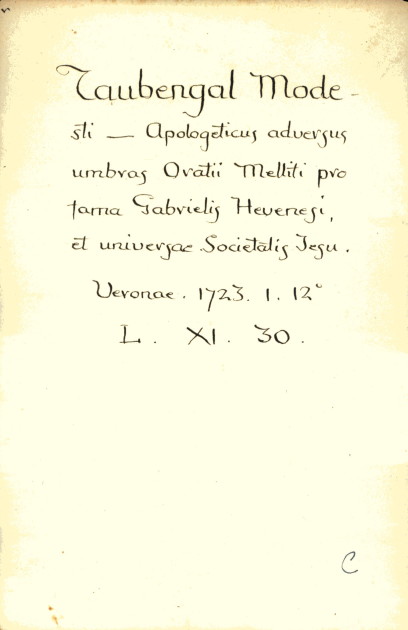 Taubengal Mode-
sti — Apologeticus adversus
umbras Oratii Melliti pro
fama Gabrielis Hevenesi,
et universae Societatis Jesu.
Veronae. 1723. 1. 12°
L. XI. 30.
C